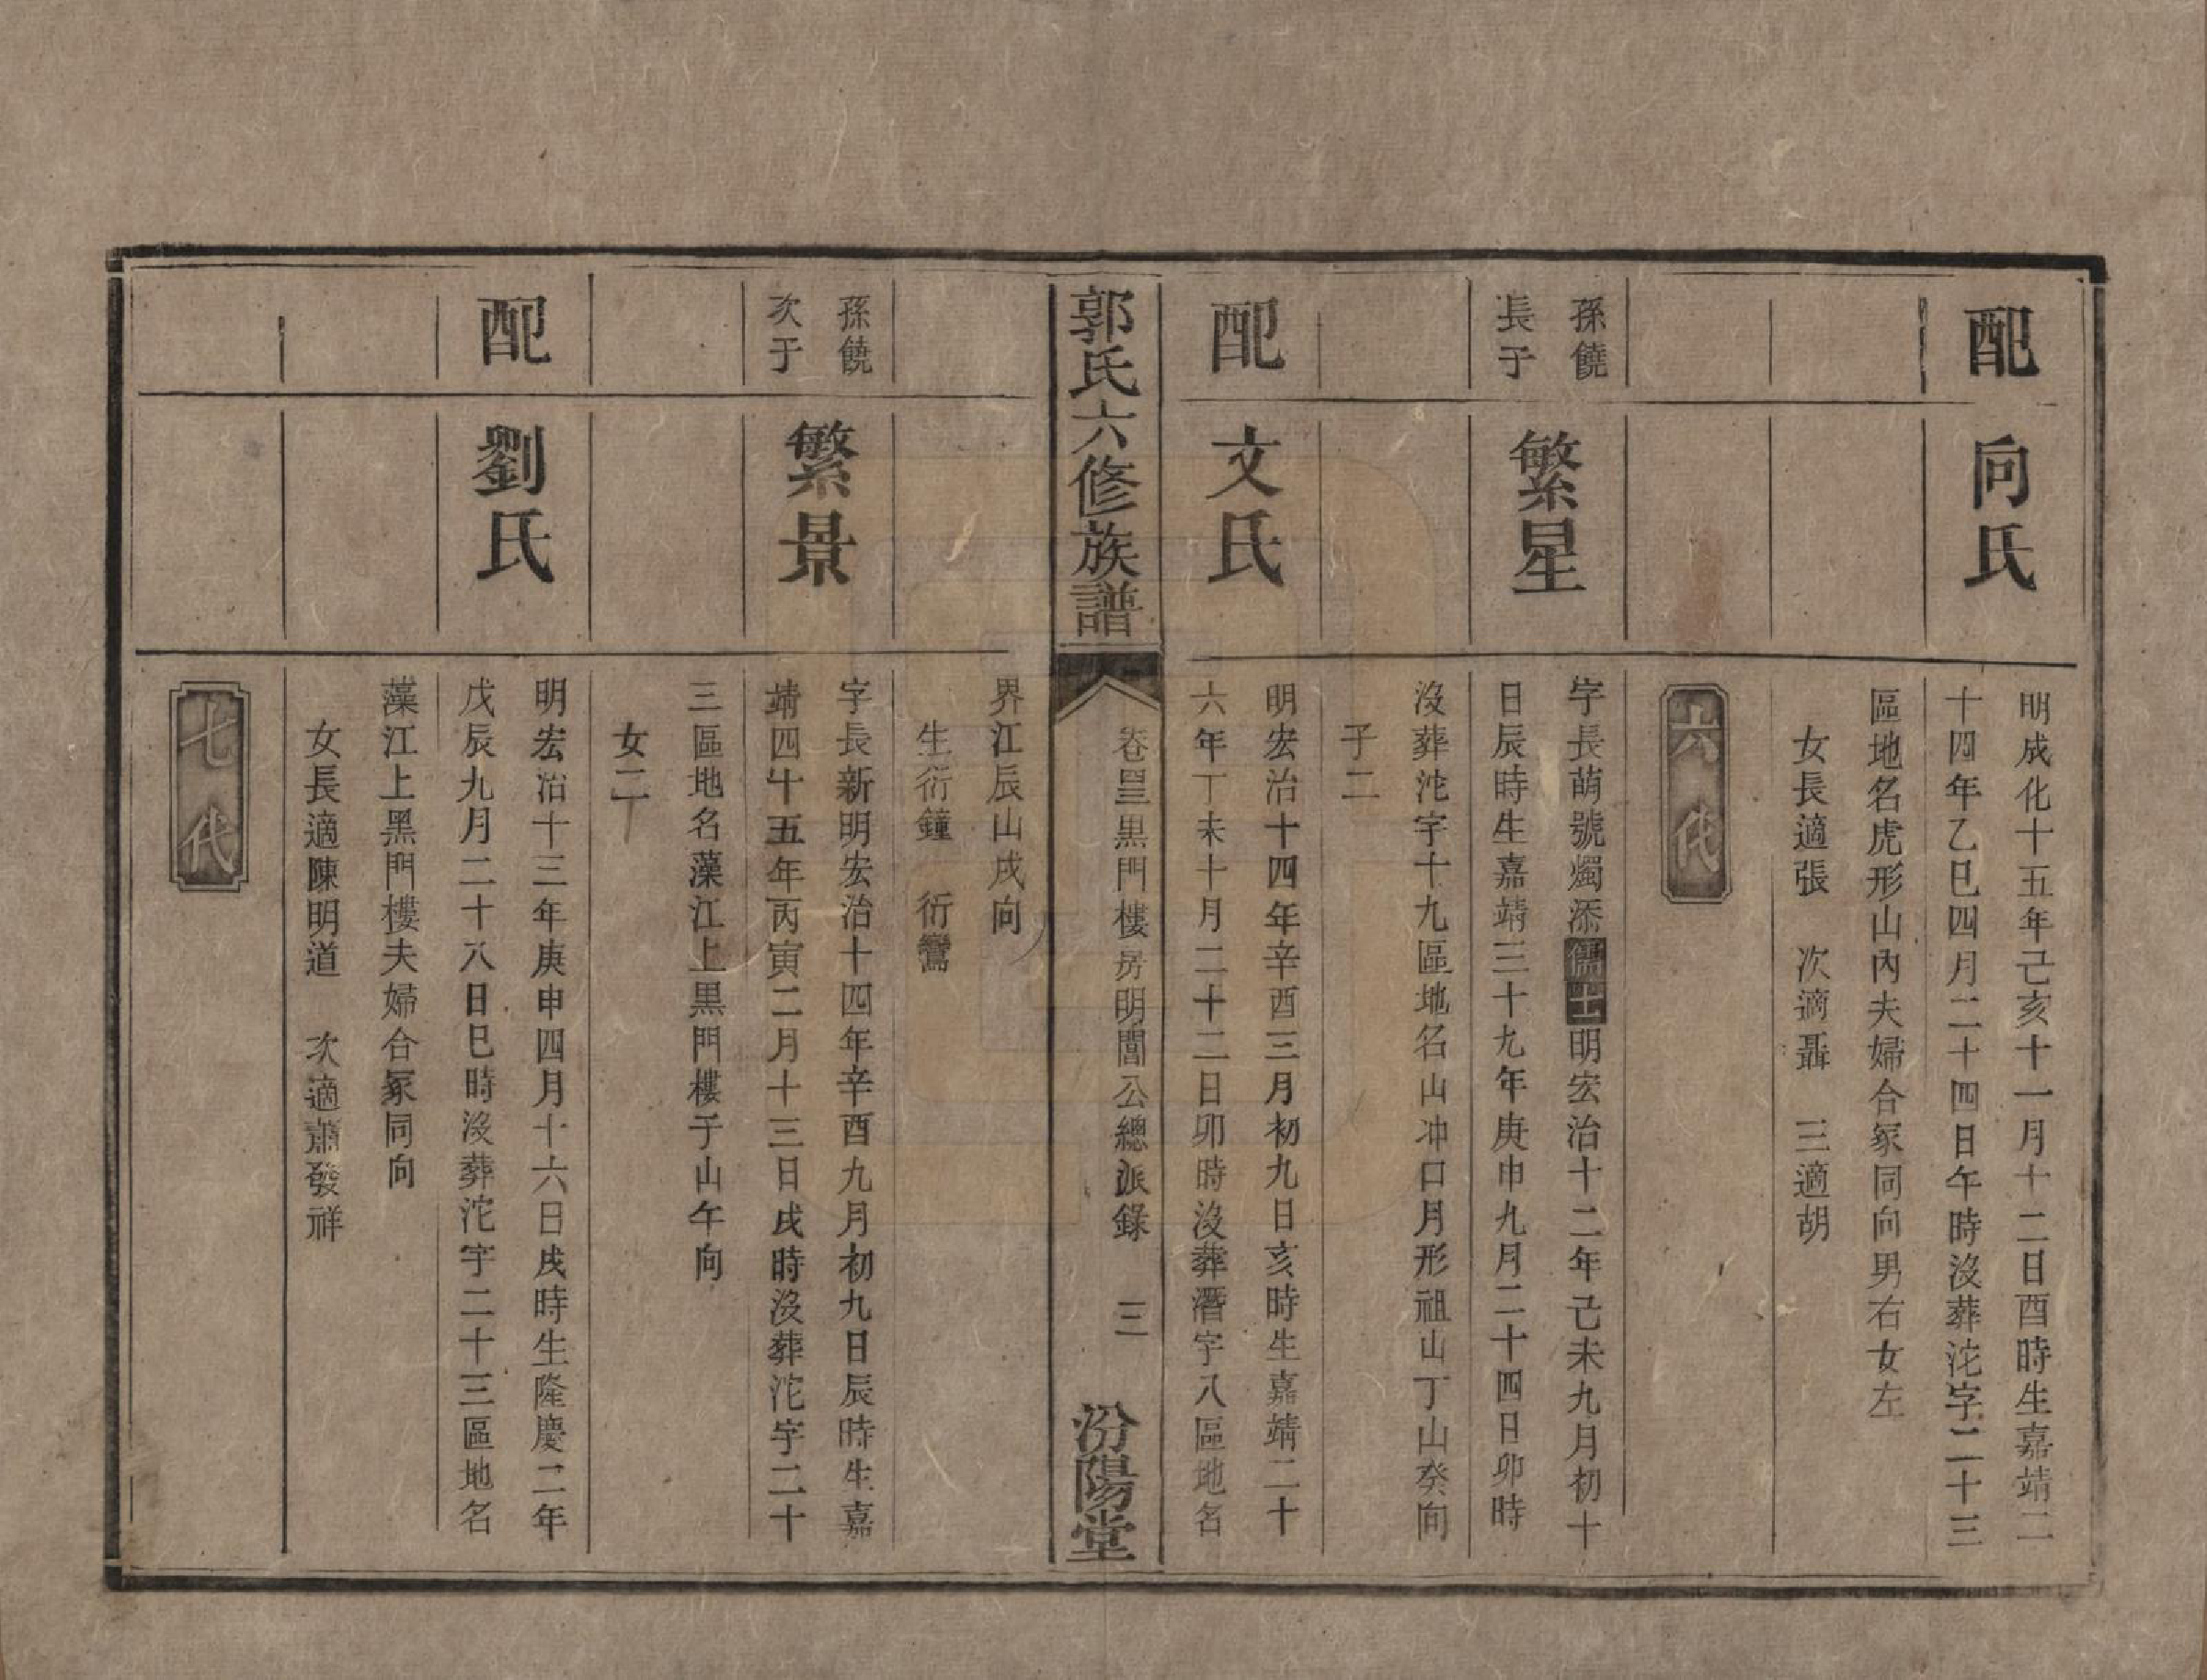 配
向氏
明成化十五年己亥十一月十二日酉時生嘉靖二
十四年乙巳四月二十四日午時沒葬沱字二十三
區地名虎形山內夫婦合冢同向男右女左
女長適張　次適聶　三適胡
六代
孫饒
長于
繁星
字長萌號燭添儒士明宏治十二年己未九月初十
日辰時生嘉靖三十九年庚申九月二十四日卯時
沒葬沱字十九區地名山冲口月形祖山丁山癸向
子二
配
文氏
明宏治十四年辛酉三月初九日亥時生嘉靖二十
六年丁未十月二十二日卯時沒葬潛字八區地名
郭氏六修族譜
卷四三黑門樓房明閶公總派錄　三
汾陽堂
界江辰山戌向
生衍鐘　衍鸞
孫饒
次于
繁景
字長新明宏治十四年辛酉九月初九日辰時生嘉
靖四十五年丙寅二月十三日戌時沒葬沱字二十
三區地名藻江上黑門樓子山午向
女二
配
劉氏
明宏治十三年庚申四月十六日戌時生隆慶二年
戊辰九月二十八日巳時沒葬沱字二十三區地名
藻江上黑門樓夫婦合冢同向
女長適陳明道　次適蕭發祥
七代